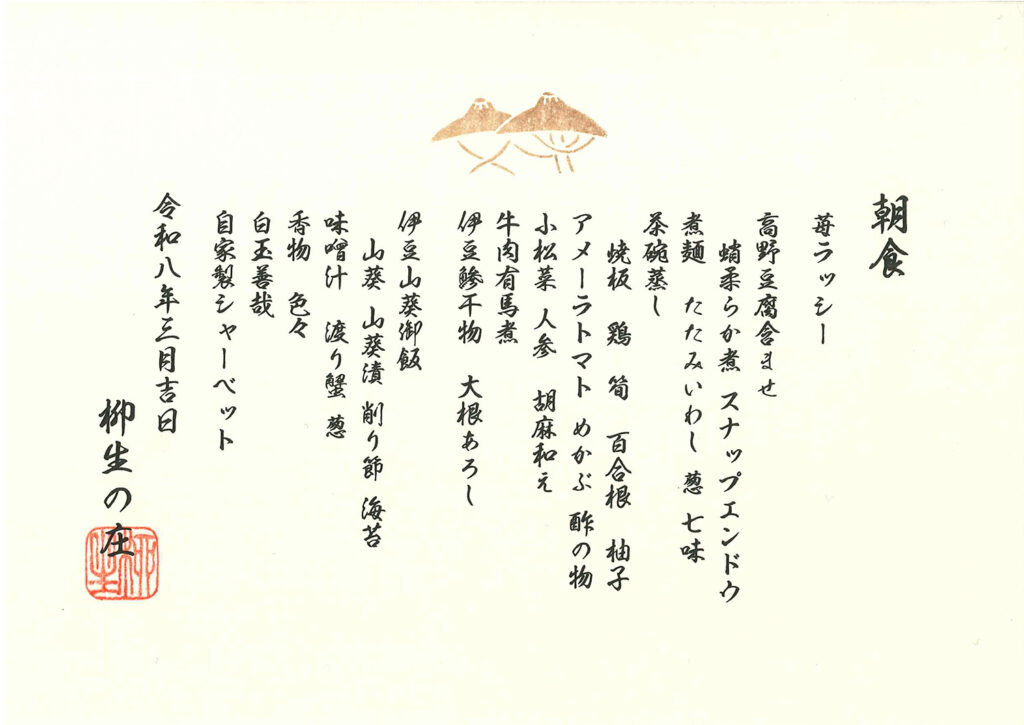 朝食
苺ラッシー
高野豆腐含ませ
蛸柔らか煮 スナップエンドウ
煮麺 たたみいわし 葱 七味
茶碗蒸し
焼板 鶏 筍 百合根 柚子
アメーラトマト めかぶ 酢の物
小松菜 人参 胡麻和え
牛肉有馬煮
伊豆鯵干物 大根おろし
伊豆山葵御飯
山葵 山葵漬 削り節 海苔
味噌汁 渡り蟹 葱
香物 色々
白玉善哉
自家製シャーベット
令和八年三月吉日
柳生の庄
柳生